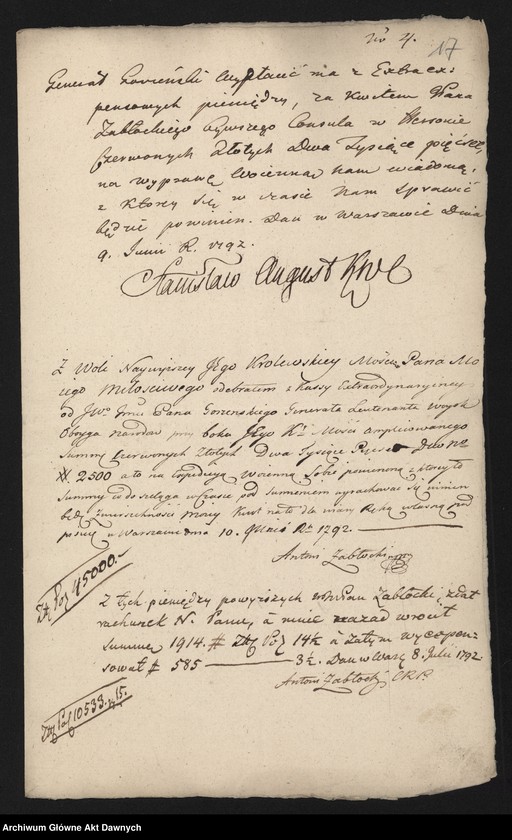 No 4.
17
Generał Gorzeński wypłacić ma z Extraex:
pensowych pieniędzy, za kwitem Pana
Zabłockiego bywszego Consula w Hersonie
Czerwonych złotych Dwa Tysiące pięćset,
na wyprawę wojenną nam wiadomą,
z ktorey się w czasie Nam sprawić
będzie powinien. Dan w Warszawie Dnia
9. Junii R. 1792.
Stanisław August Król
Z Woli Naywyższey JEgo Krolewskiey Mości Pana Mo
iego Miłościwego odebrałem z Kassy Extraordynaryiney
od JWo Jmci Pana Gorzenskiego Generała Leutenanta Woysk
Oboyga Narodow przy boku JEgo Kr Mości
Summę Czerwonych Złotych Dwa Tysiące Pięćset
2500 a to na Expedycyą Wojenną Sobie poruczoną z ktory to
Summy iako do szeląga w czasie pod Sumieniem wyrachować się winien
będę Zwierzchności moiey Kwit na to dla wiary Ręką własną pod
pisuię w Warszawie dnia 10. Junii Ru 1792.
Antoni Zabłocki mpp
Złt Pol 45000.-
Z tych pieniędzy powyższych Pan Zabłocki, zdał
rachunek N. Panu, a mnie nazad wrocił
Summę 1914. # Złt Pol 14½ a zatym wyexpen:
sował # 585 3½. Dan w War: 8. Julii 1792.
Antoni Zabłocki CRP.
Złt Pol 10533. 15.
Archiwum Główne Akt Dawnych